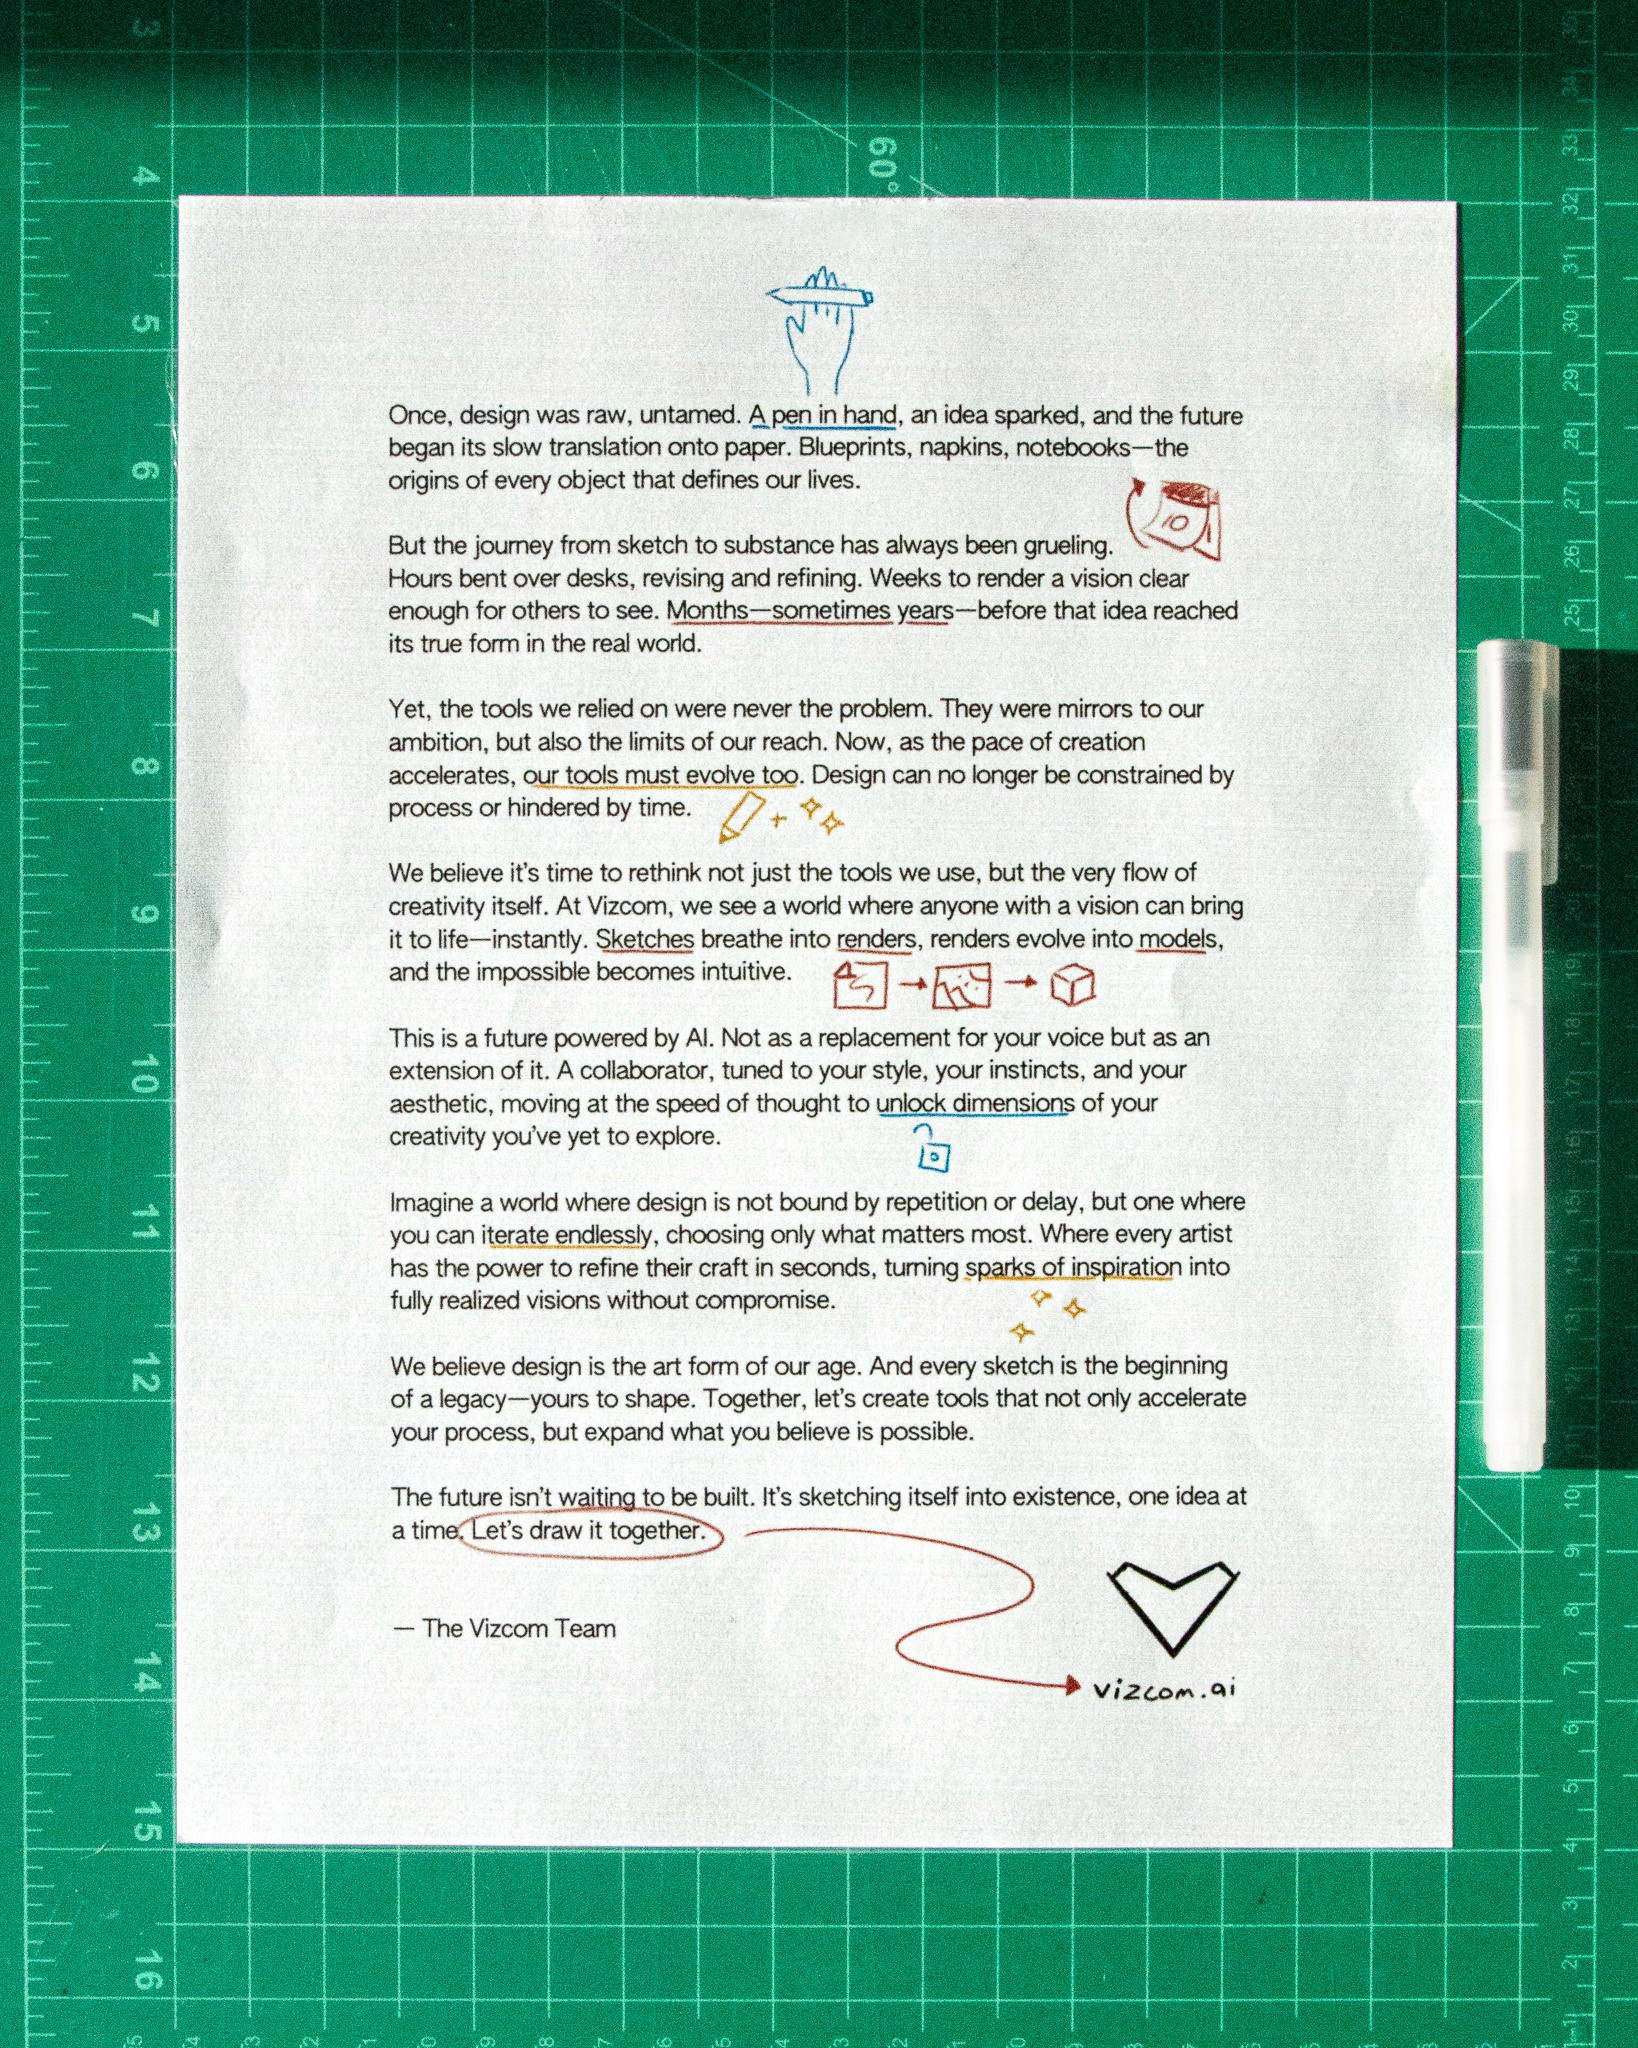 60°
Once, design was raw, untamed. A pen in hand, an idea sparked, and the future
began its slow translation onto paper. Blueprints, napkins, notebooks—the
origins of every object that defines our lives.
10
But the journey from sketch to substance has always been grueling.
Hours bent over desks, revising and refining. Weeks to render a vision clear
enough for others to see. Months—sometimes years—before that idea reached
its true form in the real world.
Yet, the tools we relied on were never the problem. They were mirrors to our
ambition, but also the limits of our reach. Now, as the pace of creation
accelerates, our tools must evolve too. Design can no longer be constrained by
process or hindered by time.
+
We believe it's time to rethink not just the tools we use, but the very flow of
creativity itself. At Vizcom, we see a world where anyone with a vision can bring
it to life—instantly. Sketches breathe into renders, renders evolve into models,
and the impossible becomes intuitive.
This is a future powered by AI. Not as a replacement for your voice but as an
extension of it. A collaborator, tuned to your style, your instincts, and your
aesthetic, moving at the speed of thought to unlock dimensions of your
creativity you've yet to explore.
Imagine a world where design is not bound by repetition or delay, but one where
you can iterate endlessly, choosing only what matters most. Where every artist
has the power to refine their craft in seconds, turning sparks of inspiration into
fully realized visions without compromise.
We believe design is the art form of our age. And every sketch is the beginning
of a legacy—yours to shape. Together, let's create tools that not only accelerate
your process, but expand what you believe is possible.
The future isn't waiting to be built. It's sketching itself into existence, one idea at
a time. Let's draw it together.
— The Vizcom Team
vizcom.ai
3
4
5
6
7
8
9
10
11
12
13
14
15
16
35
34
33
32
31
30
29
28
27
26
25
20
19
18
17
16
15
14
13
12
11
10
9
8
7
6
5
4
3
2